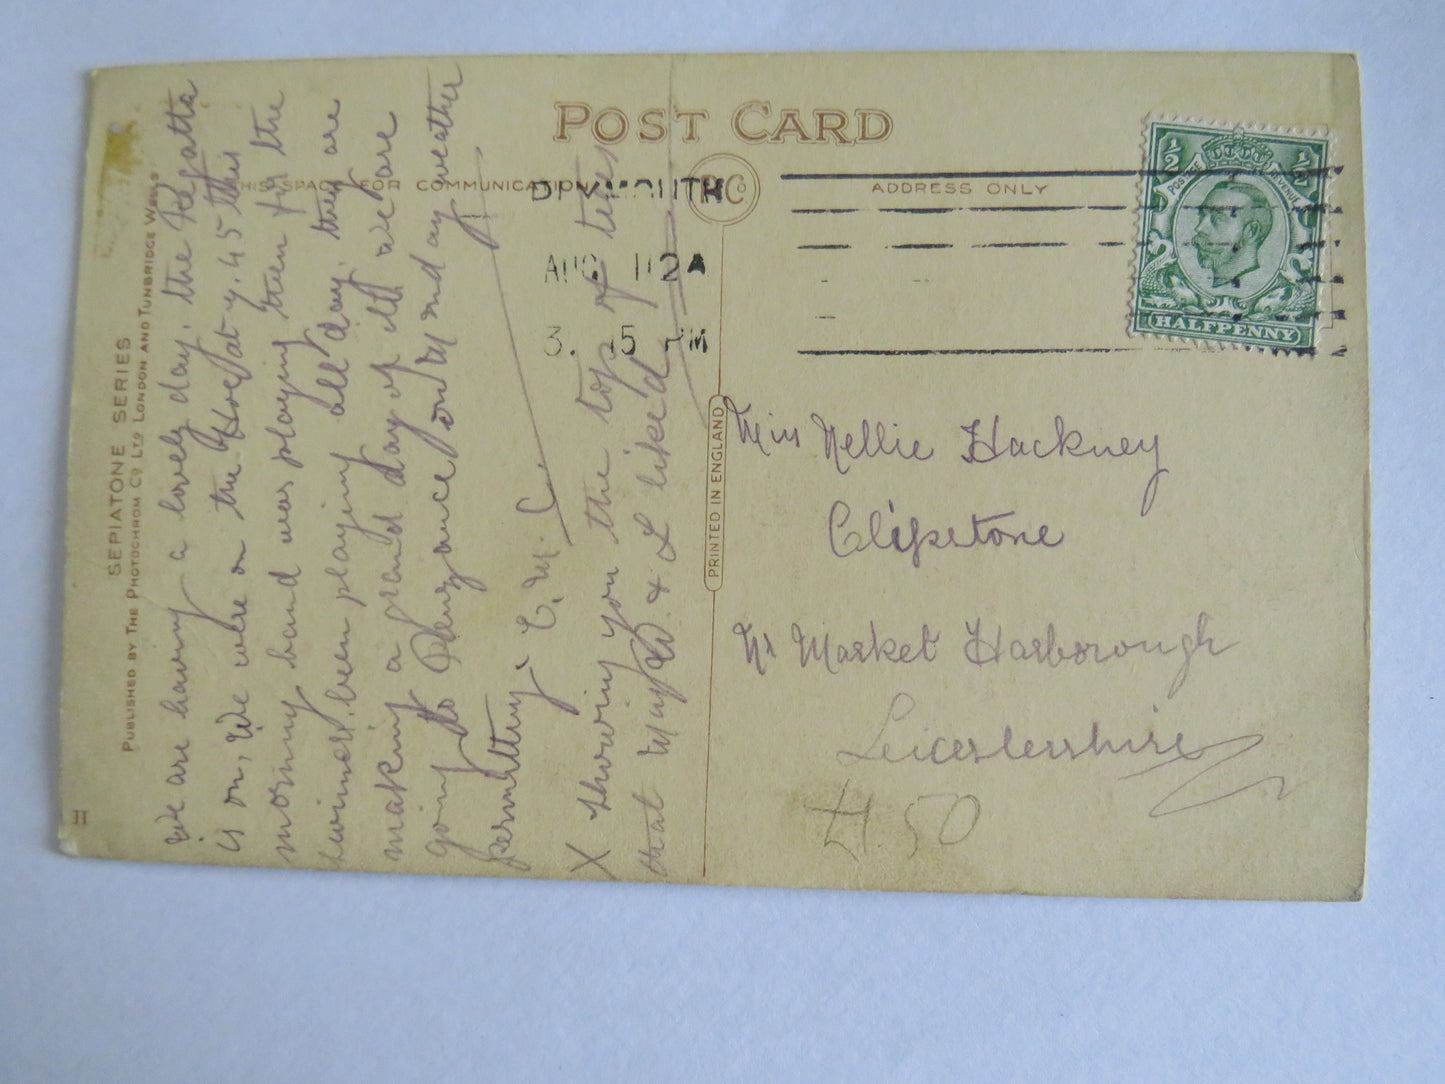 POST CARD
THIS SPACE FOR COMMUNICATION
ADDRESS ONLY
PLYMOUTH
AUG 1 12 A
3. 15 PM
½ ½
POSTAGE REVENUE
HALFPENNY
SEPIATONE SERIES
PUBLISHED BY THE PHOTOCHROM CO LTD LONDON AND TUNBRIDGE WELLS
PRINTED IN ENGLAND
H
We are having a lovely day. the Regatta
is on, We were on the Hoe at 7.45 this
morning band was playing then for the
swimers, been playing all day. they are
making a grand day of it. We are
going to Penzance on Monday weather
permitting. E. M. C.
X showing you the top of
that May W. & L liked
Miss Nellie Hackney
Clipstone
Nr Market Harborough
Leicestershire
4.50